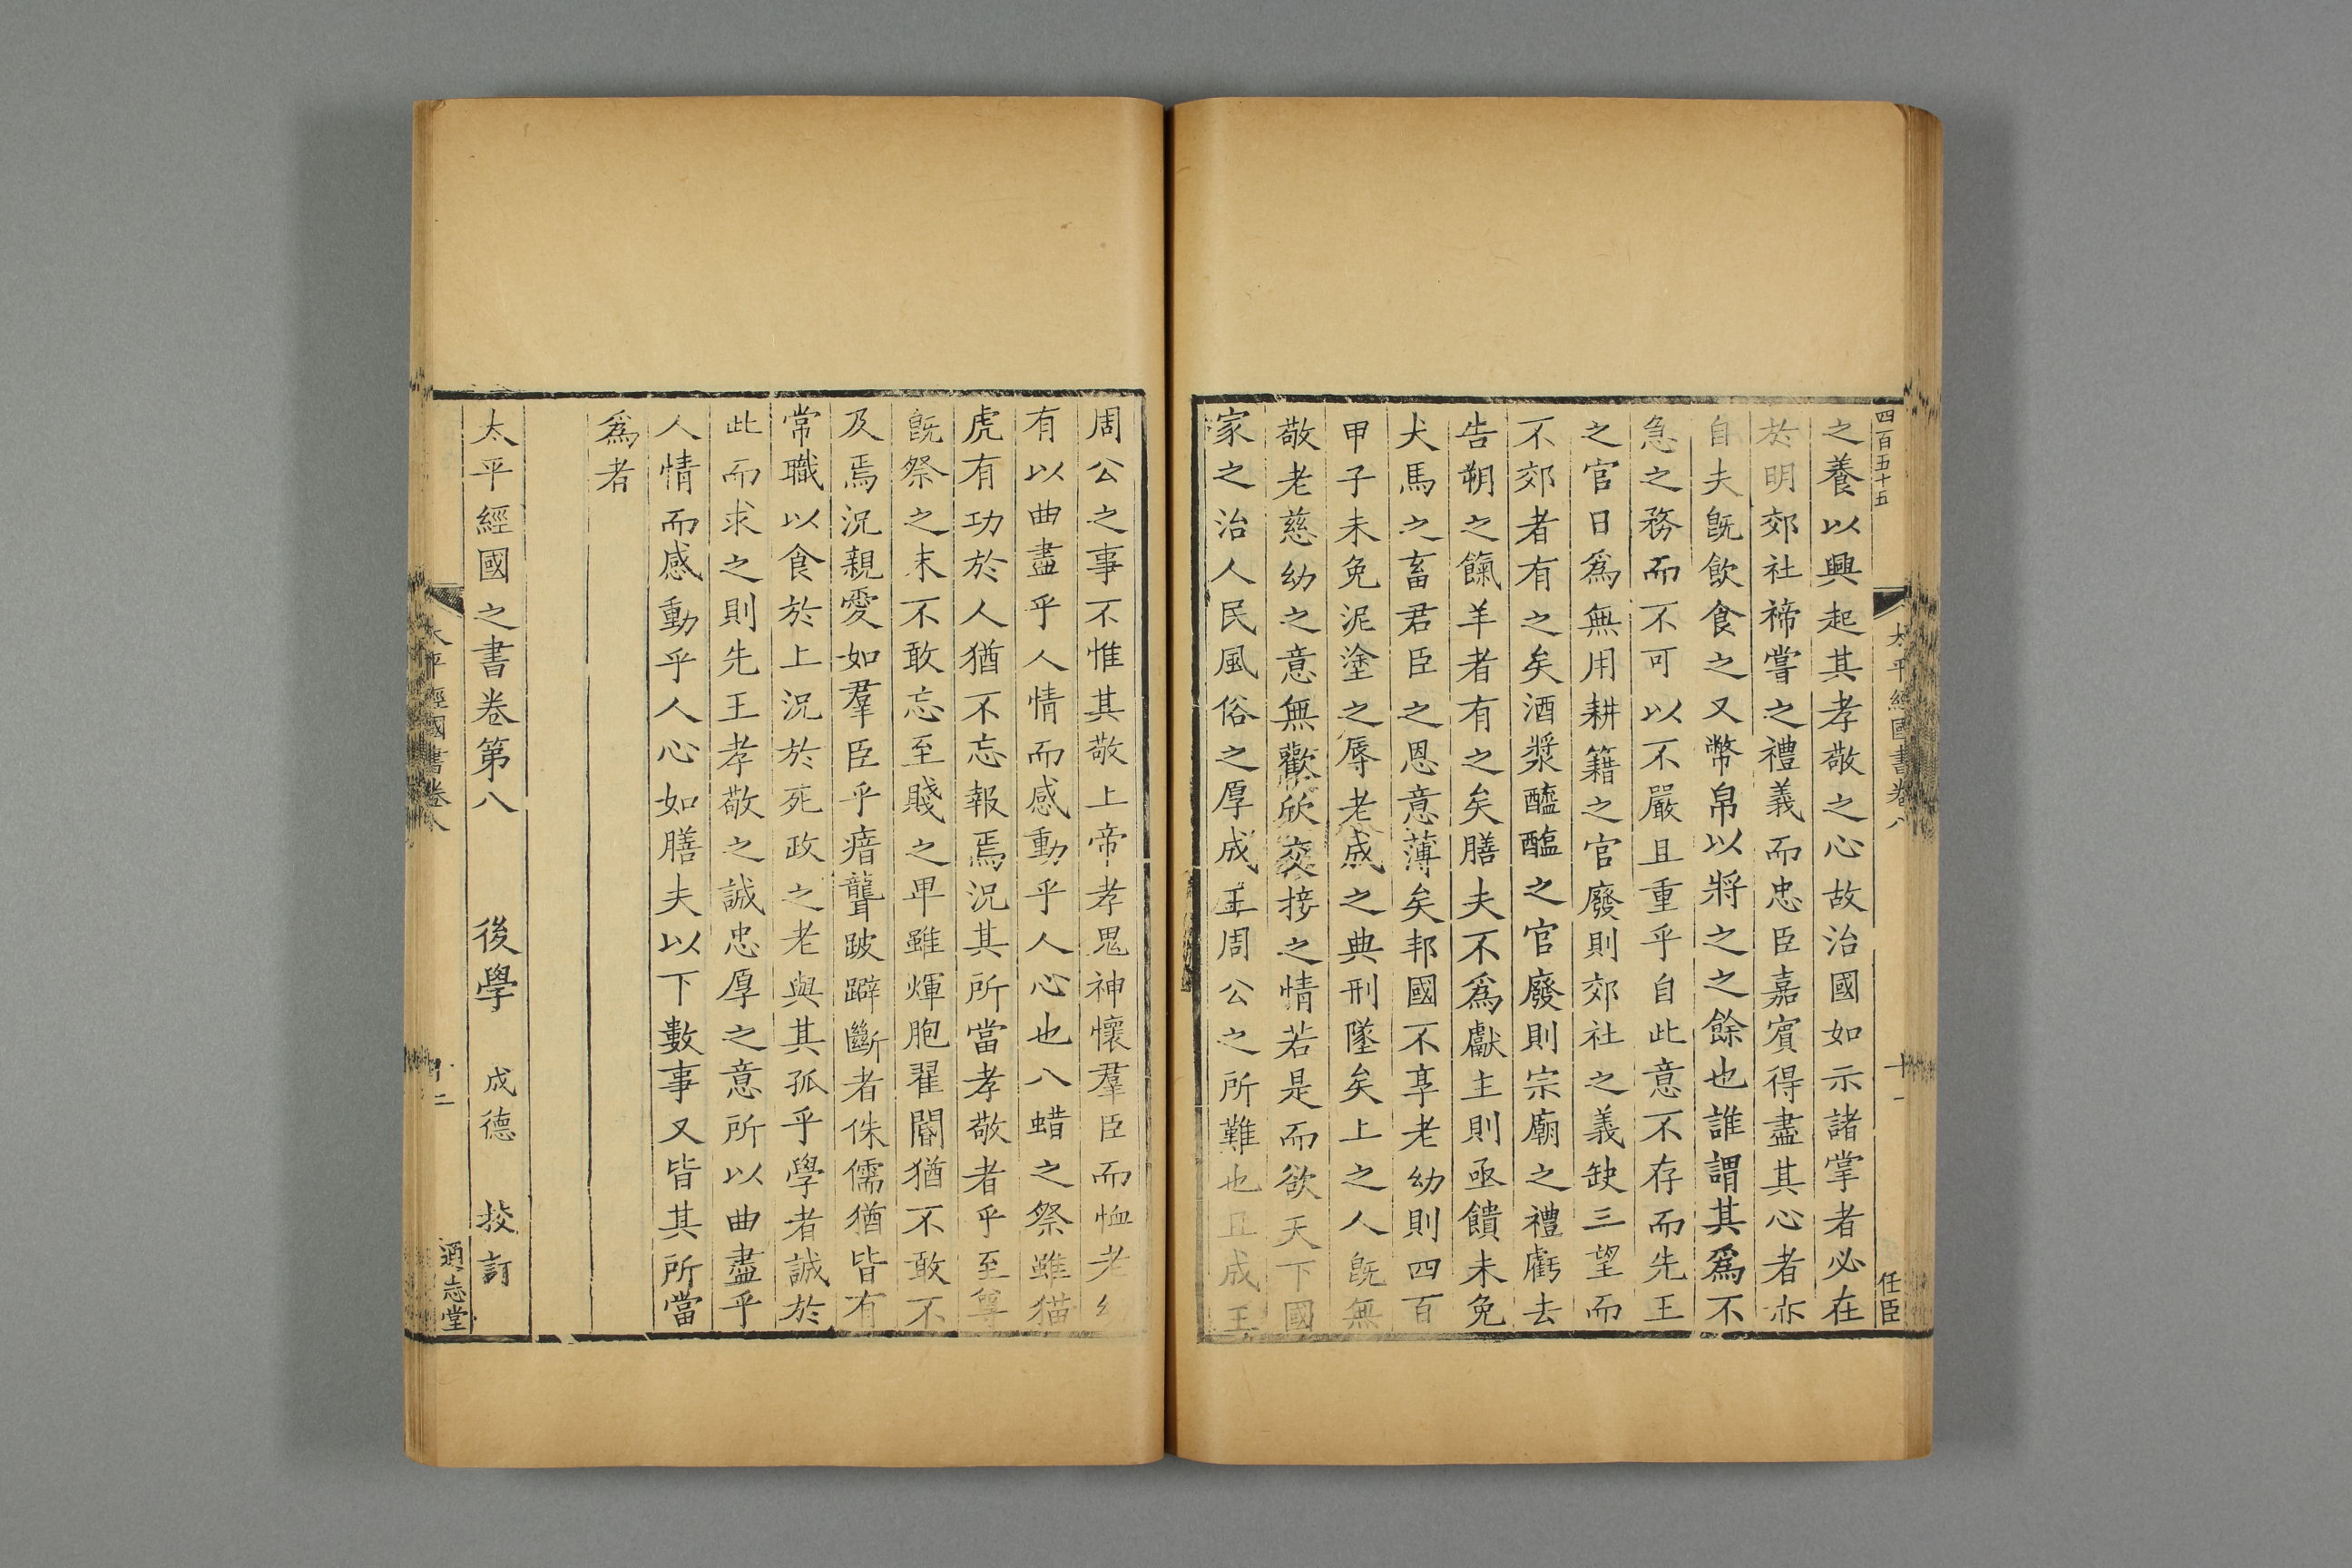 四百五十五
太平經國書卷八
十一
任臣
之養以興起其孝敬之心故治國如示諸掌者必在
於明郊社禘嘗之禮義而忠臣嘉賓得盡其心者亦
自夫旣飲食之又幣帛以將之之餘也誰謂其爲不
急之務而不可以不嚴且重乎自此意不存而先王
之官日爲無用耕籍之官廢則郊社之義缺三望而
不郊者有之矣酒漿醯醢之官廢則宗廟之禮虧去
告朔之餼羊者有之矣膳夫不爲獻主則亟饋未免
犬馬之畜君臣之恩意薄矣邦國不享老幼則四百
甲子未免泥塗之辱老成之典刑墜矣上之人旣無
敬老慈幼之意無歡欣交接之情若是而欲天下國
家之治人民風俗之厚成王周公之所難也且成王
周公之事不惟其敬上帝孝鬼神懷羣臣而恤老幼
有以曲盡乎人情而感動乎人心也八蜡之祭雖猫
虎有功於人猶不忘報焉況其所當孝敬者乎至尊
旣祭之末不敢忘至賤之畀雖煇胞翟閽猶不敢不
及焉況親愛如羣臣乎瘖聾跛躃斷者侏儒猶皆有
常職以食於上況於死政之老與其孤乎學者誠於
此而求之則先王孝敬之誠忠厚之意所以曲盡乎
人情而感動乎人心如膳夫以下數事又皆其所當
爲者
太平經國之書卷第八 後學 成德 挍訂
太平經國書卷八
十二
通志堂